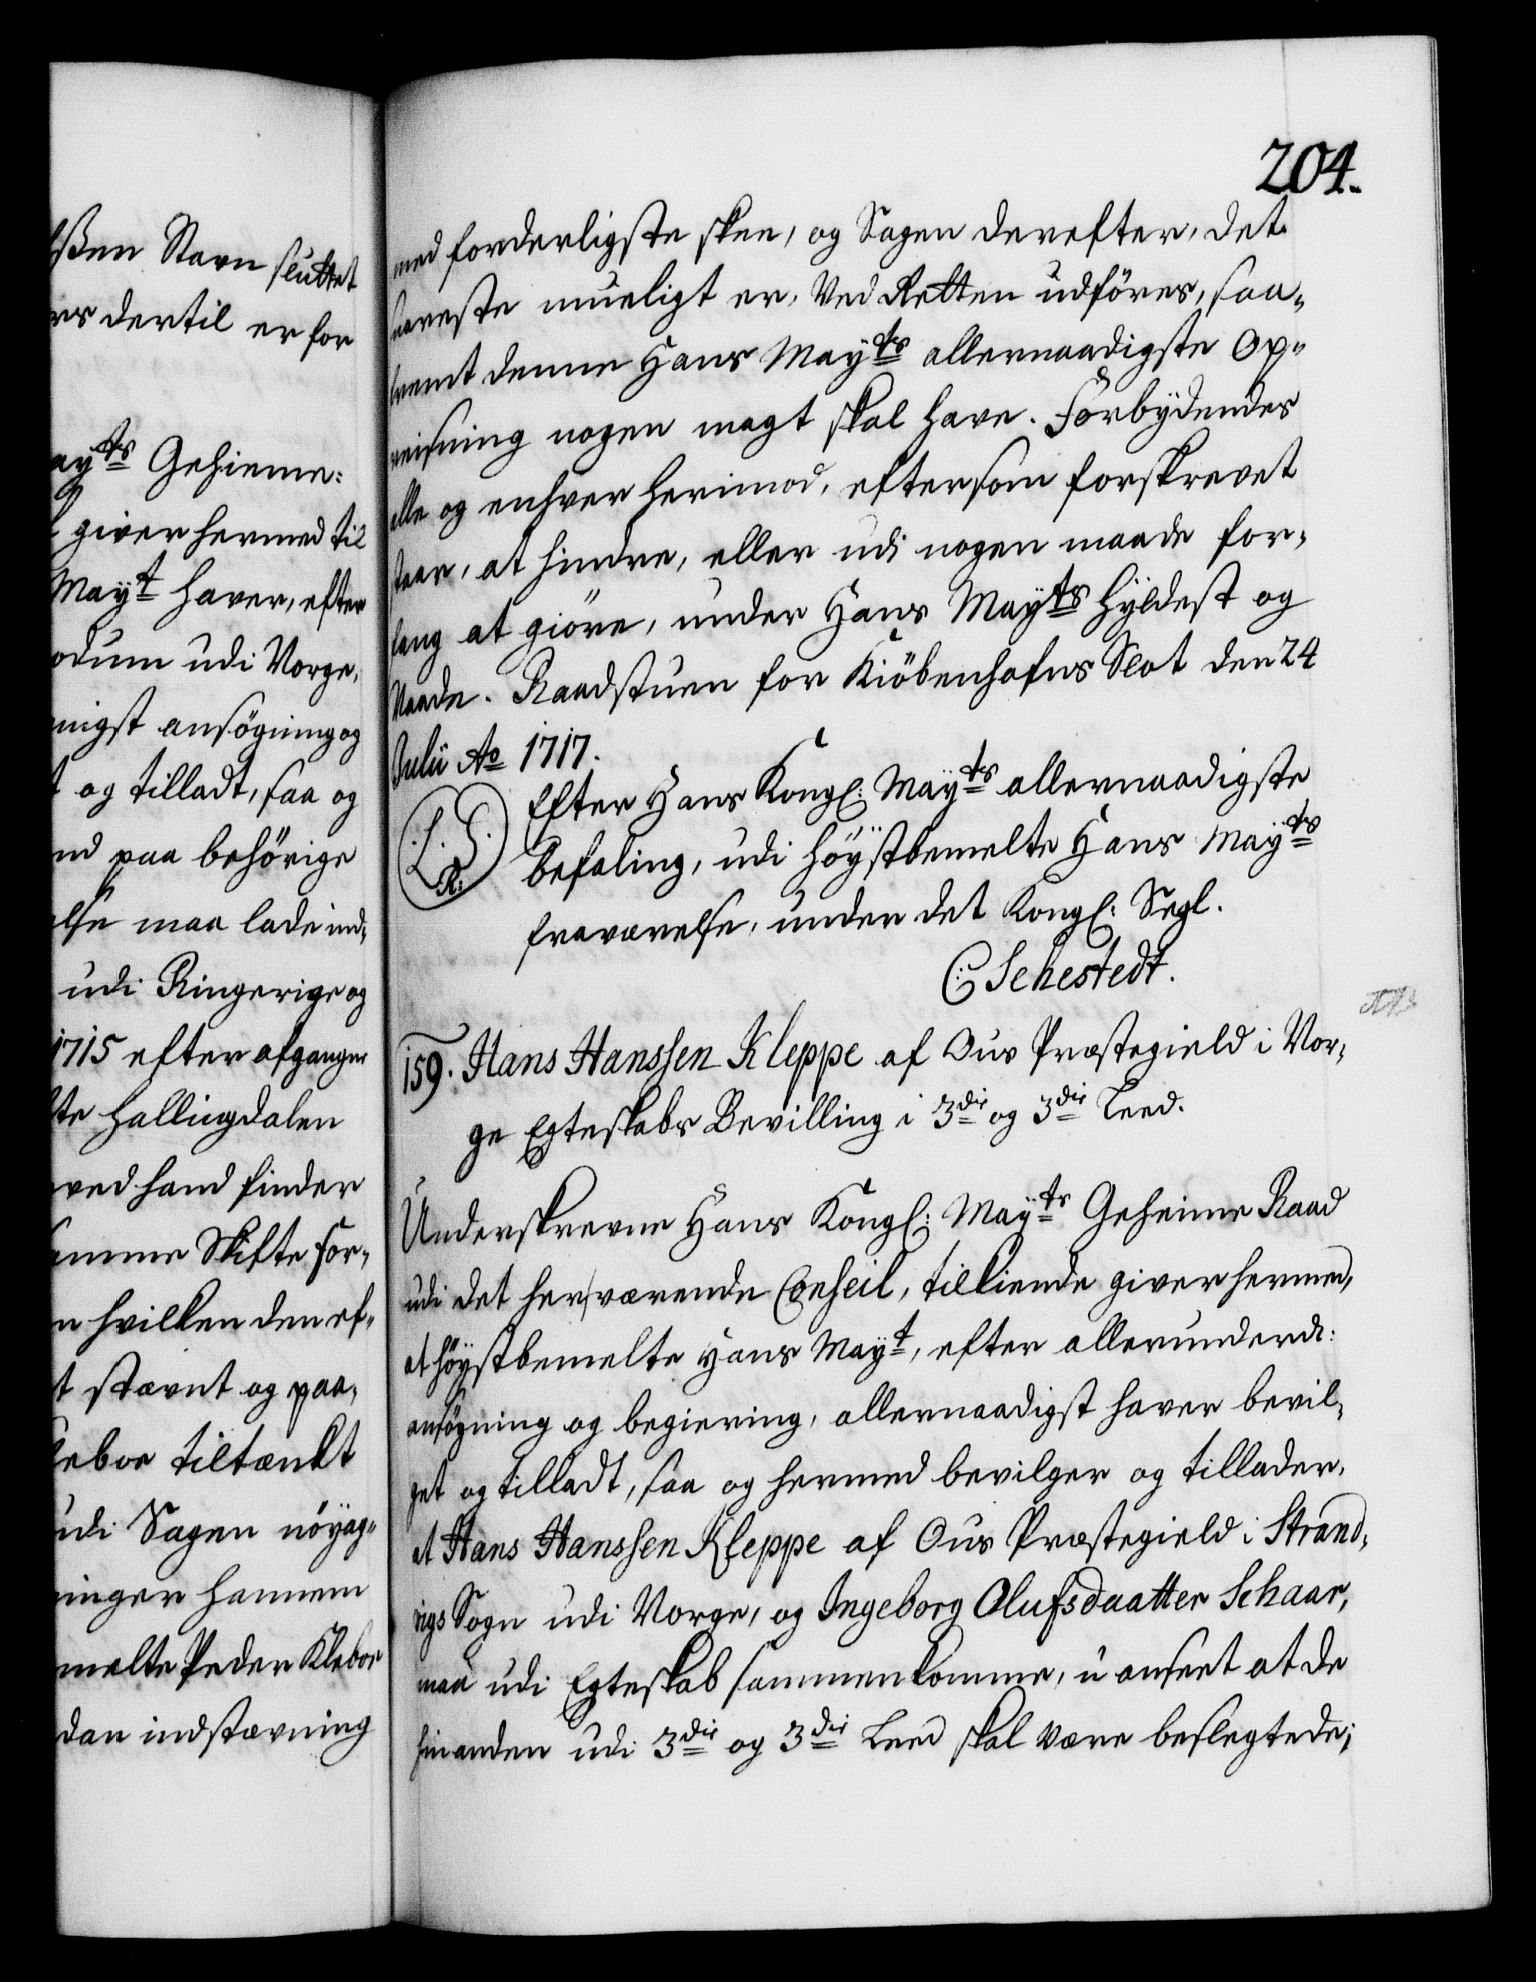 ßen Stavn sluttet
dertil er for
ay͞ts Geheime:
giver hermed til
May͞t haver, efter
udi Norge,
nigst ansögning og
og tilladt, saa og
nd paa behörige
lse maa lade ind,
udi Ringerige og
1715 efter afgangne
te Hallingdalen
ved hand finder
amme Skifte for,
n hvilken den ef,
t stævnt og paa,
Klebor tiltænkt
udi Sagen nöyag,
inger hannem
melte Peder Klebor
dan indstævning
204.
med forderligste skee, og Sagen derefter, det
snareste mueligt er, ved Retten udföres, saa,
fremt denne Hans May͞ts allernaadigste Op,
reisning nogen magt skal have. Forbydendes
alle og enhver herimod, eftersom forskrevet
staar, at hindre, eller udi nogen maade for,
fang at giöre, under Hans May͞ts hyldest og
Naade. Raadstuen for Kiöbenhafns Slot den 24
Julii Ao 1717.
L. S.
R:
Efter Hans Kongl: May͞ts allernaadigste
befaling, udi höystbemelte Hans May͞ts
fraværelse, under det Kongl: Segl.
C: Sehestedt.
159. Hans Hanssen Kleppe af Ous Præstegield i Nor,
ge Egteskabs Bevilling i 3die og 3die Leed.
Underskrevne Hans Kongl: May͞ts Geheime Raad
udi det herværende Conseil, tilkiende giver hermed,
at höystbemelte Hans May͞t, efter allerunderd:
ansögning og begiering, allernaadigst haver bevil,
get og tilladt, saa og hermed bevilger og tillader,
at Hans Hanssen Kleppe af Ous Præstegield i Strand,
vigs Sogn udi Norge, og Ingeborg Olufsdaatter Schaar,
maa udi Egteskab sammenkomme, u anseet at de
hinanden udi 3die og 3die Leed skal være beslegtede;